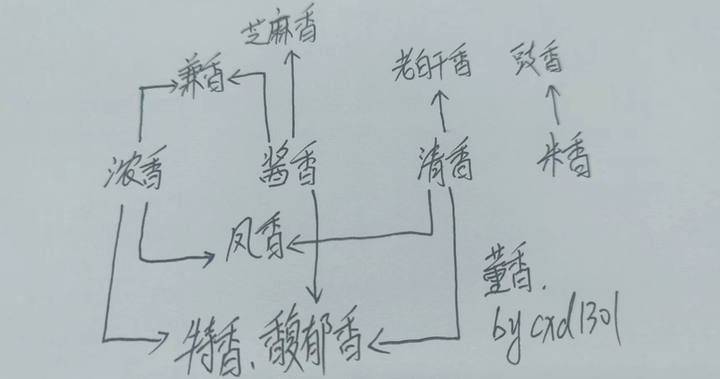 芝麻香
兼香
老白干香
豉香
浓香
酱香
清香
米香
凤香
董香.
特香、馥郁香
by cxd1301